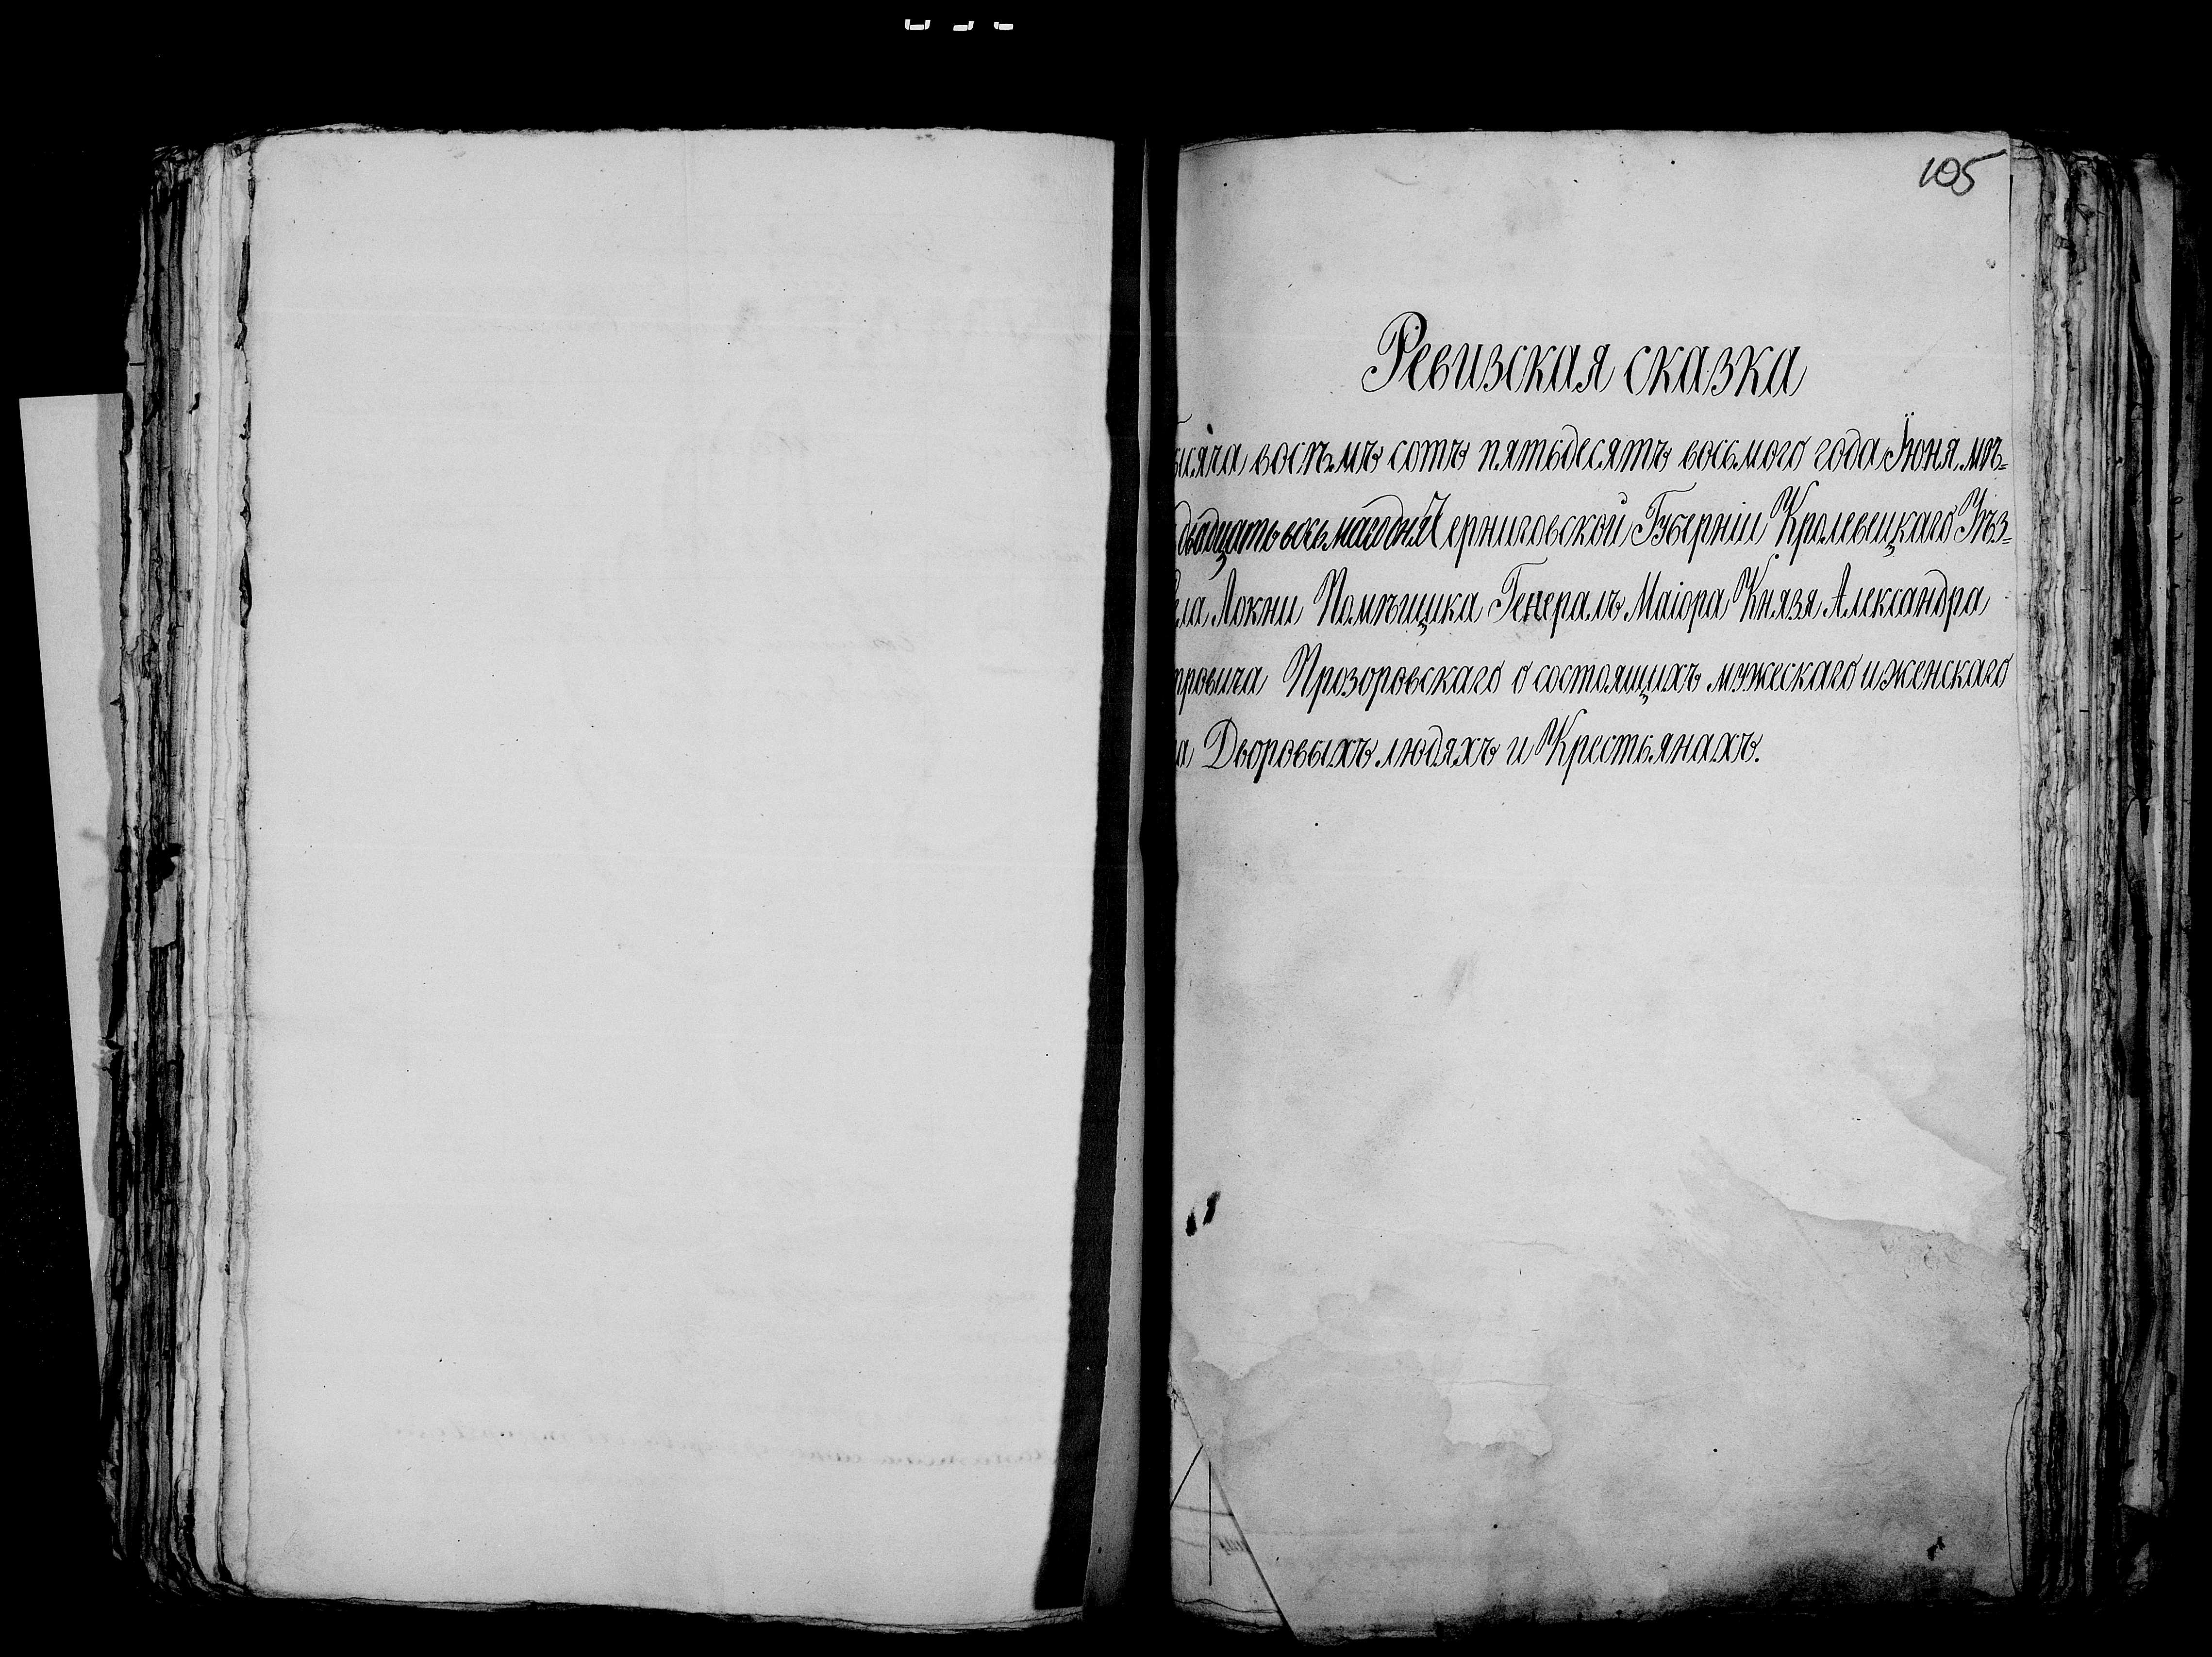 105
Ревизская сказка
ысяча восѣмъ сотъ пятьдесятъ восьмого года Іюня мѣ=
двадцать восьмаго дня Черниговской Губерніи Кролевецкаго Уѣз=
ела Локни Помѣщика Генералъ Маіора Князя Александра
тровича Прозоровскаго о состоящихъ мужескаго и женскаго
ла Дворовыхъ людяхъ и Крестьянахъ.